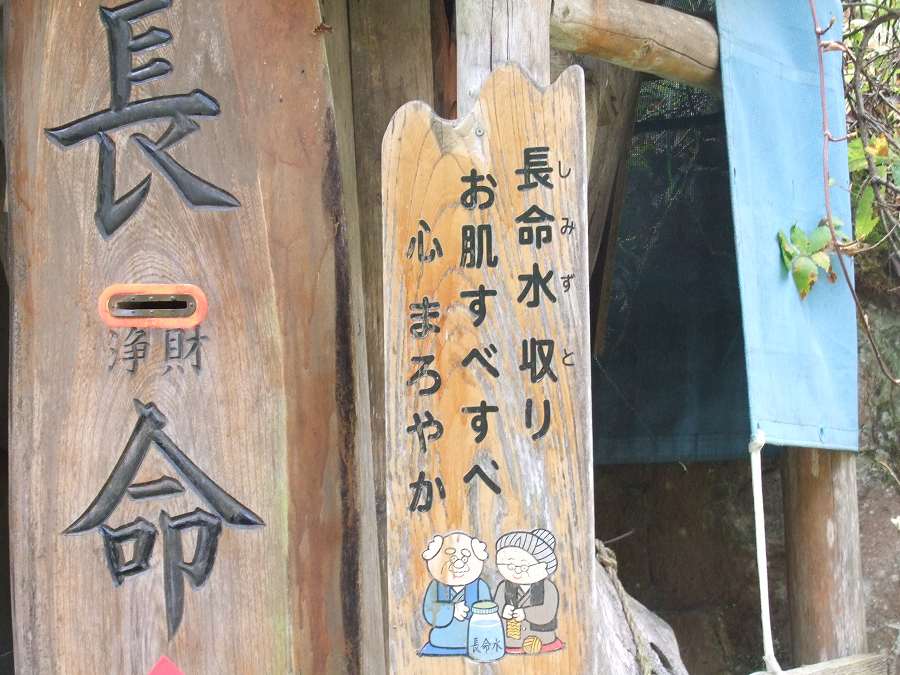 長命
浄財
長命水 収り
しみずと
お肌すべすべ
心 まろやか
長命水